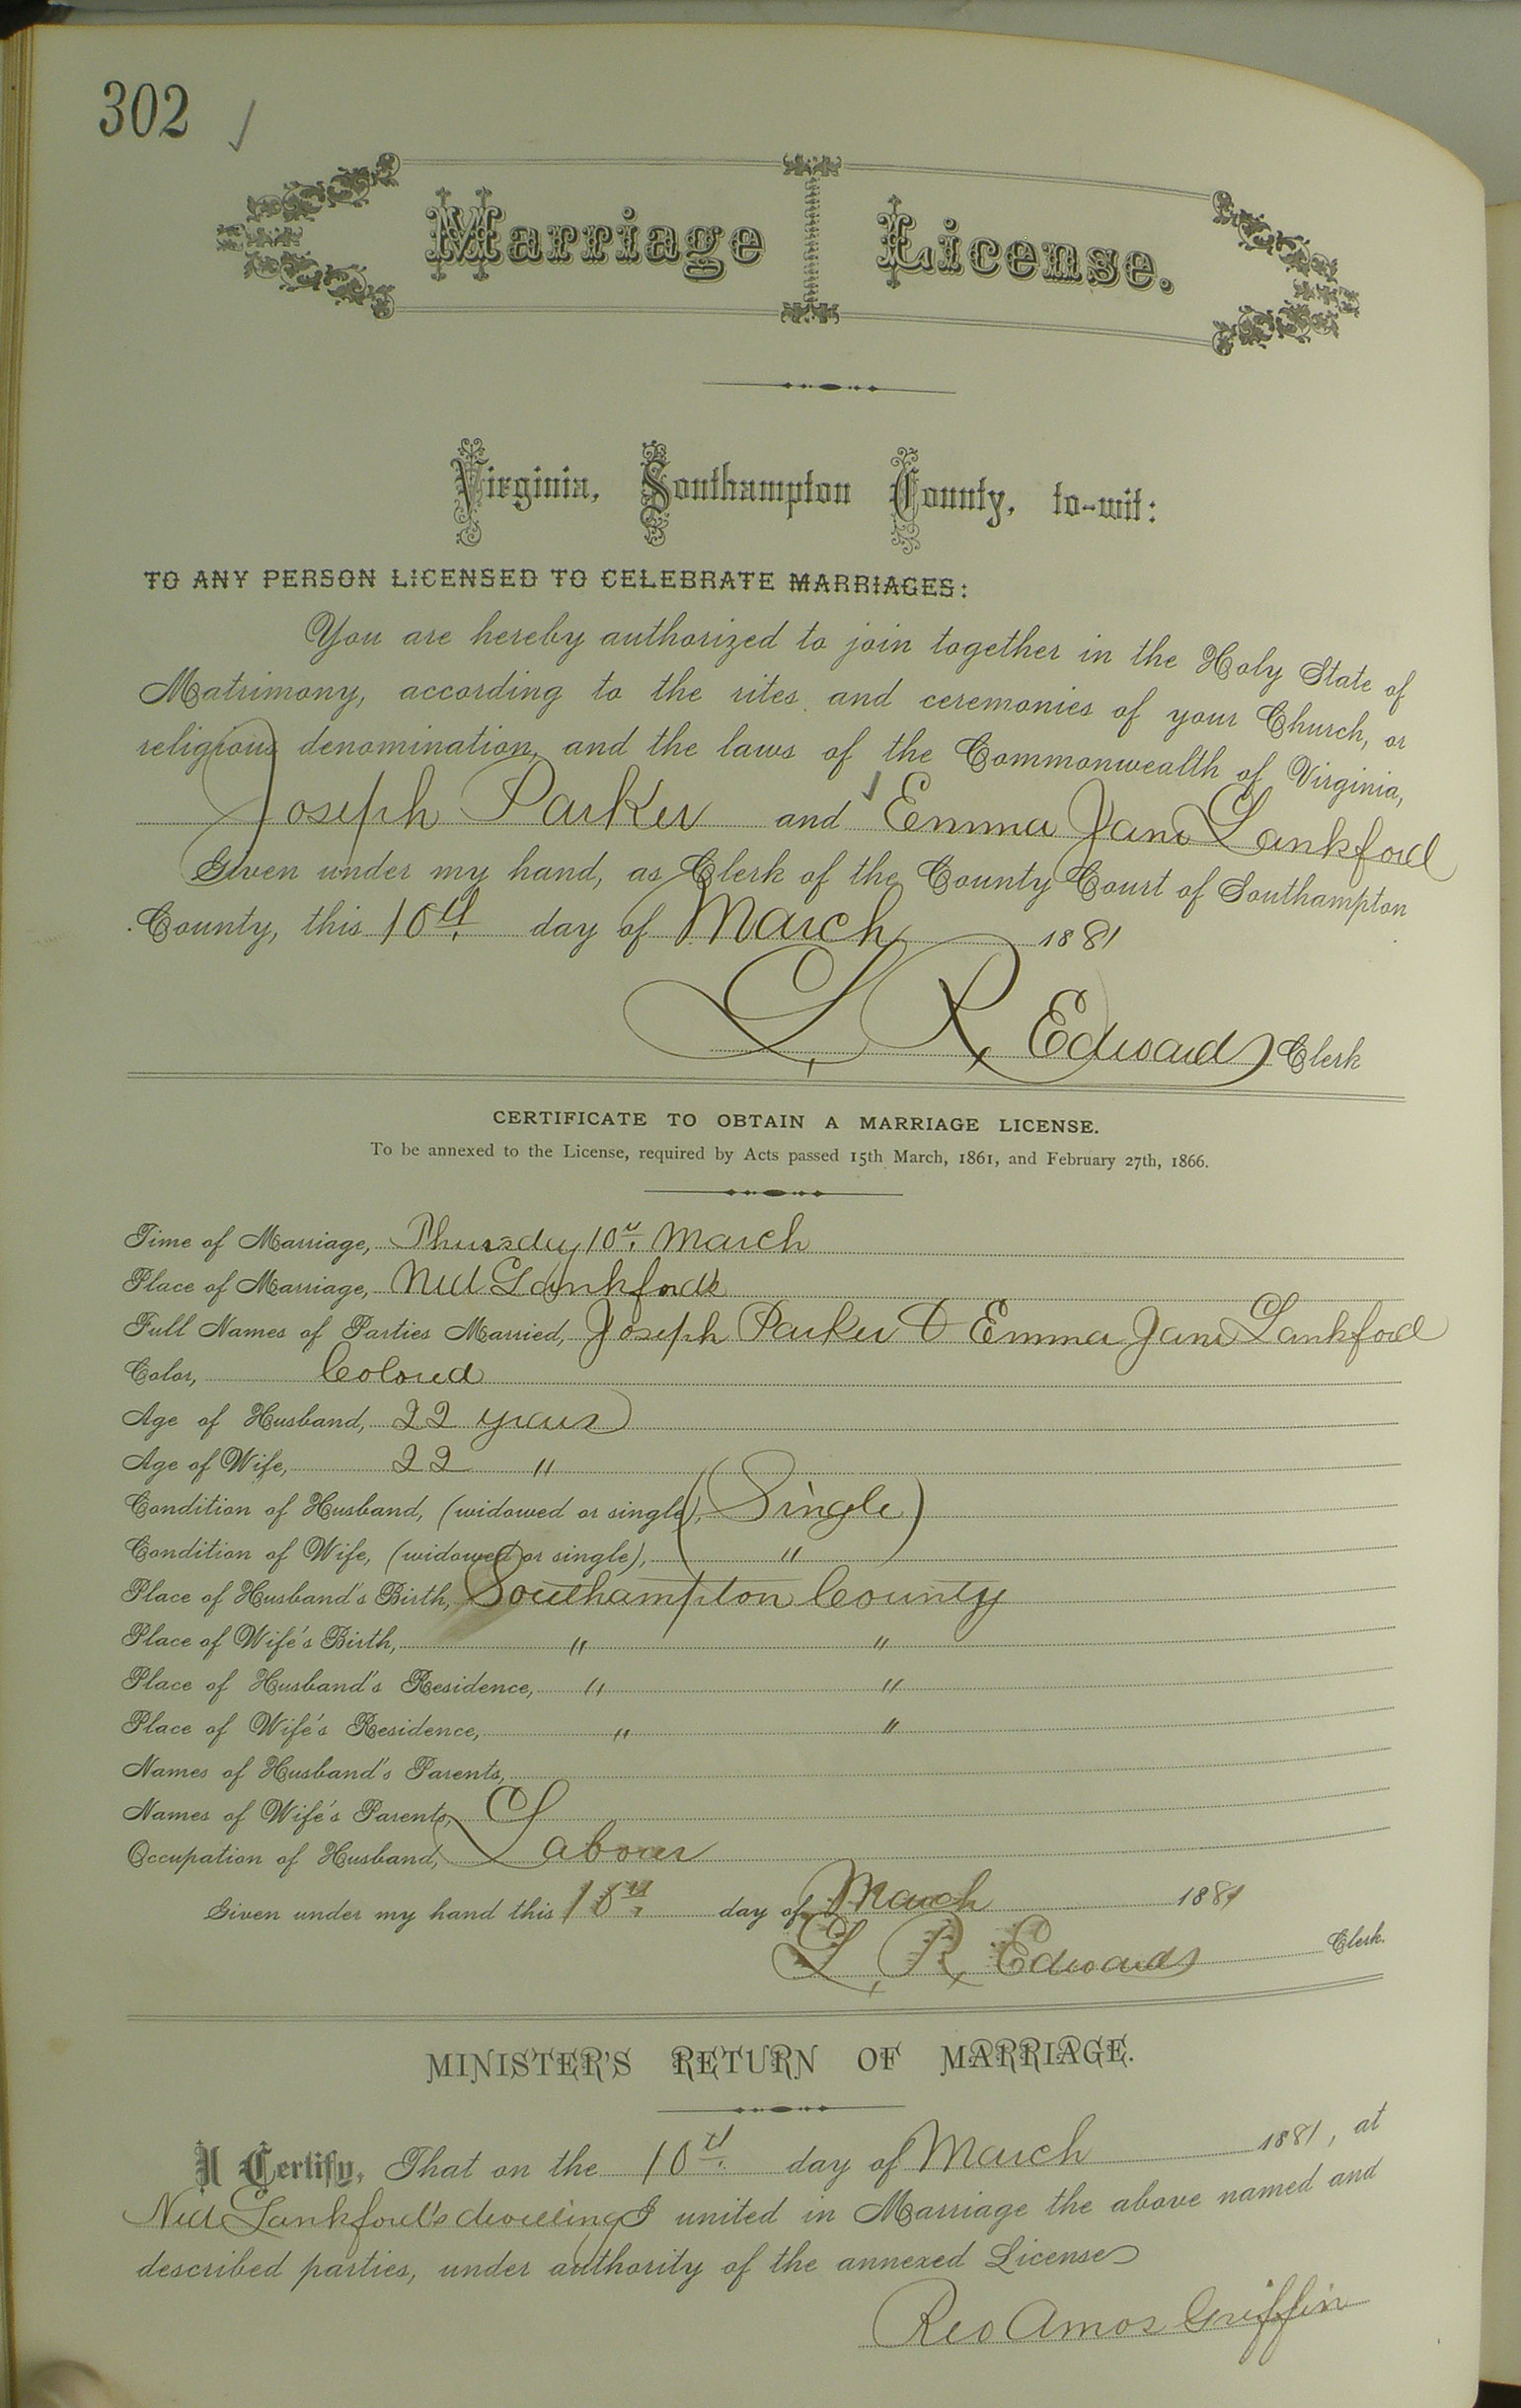 302
Marriage License.
Virginia, Southampton County, to-wit:
TO ANY PERSON LICENSED TO CELEBRATE MARRIAGES:
You are hereby authorized to join together in the Holy State of
Matrimony, according to the rites and ceremonies of your Church, or
religious denomination, and the laws of the Commonwealth of Virginia,
Joseph Parker and Emma Jane Lankford
Given under my hand, as Clerk of the County Court of Southampton
County, this 10th day of March 1881
L. R. Edwards Clerk
CERTIFICATE TO OBTAIN A MARRIAGE LICENSE.
To be annexed to the License, required by Acts passed 15th March, 1861, and February 27th, 1866.
Time of Marriage, Thursday 10th March
Place of Marriage, Ned Lankford's
Full Names of Parties Married, Joseph Parker & Emma Jane Lankford
Color, Colored
Age of Husband, 22 years
Age of Wife, 22 "
Condition of Husband, (widowed or single), (Single)
Condition of Wife, (widowed or single), "
Place of Husband's Birth, Southampton County
Place of Wife's Birth, " "
Place of Husband's Residence, " "
Place of Wife's Residence, " "
Names of Husband's Parents,
Names of Wife's Parents,
Occupation of Husband, Laborer
Given under my hand this 10th day of March 1881
L. R. Edwards Clerk.
MINISTER'S RETURN OF MARRIAGE.
I Certify, That on the 10th day of March 1881, at
Ned Lankford's dwelling I united in Marriage the above named and
described parties, under authority of the annexed License
Rev Amos Griffin